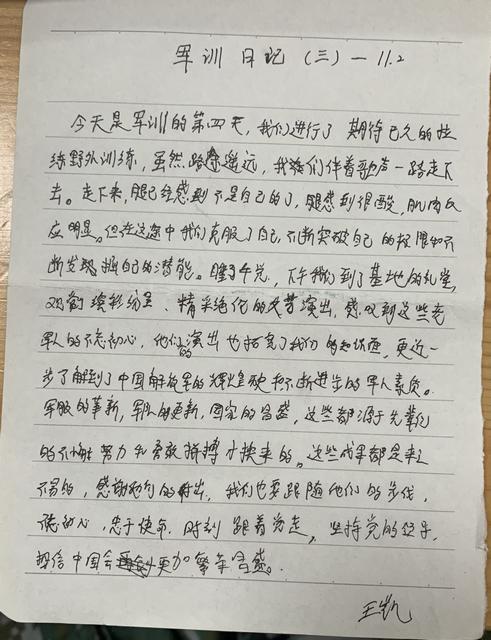 军训日记(三)—11.2
今天是军训的第四天,我们进行了期待已久的拉
练野外训练,虽然路途遥远,我们伴着歌声一路走下
去。走下来,腿已经感到不是自己的了,腿感到很酸,肌肉反
应明显。但在这途中我们克服了自己,不断突破自己的极限和不
断发掘自己的潜能。睡了午觉,下午我们到了基地的礼堂,
观看缤彩纷呈、精采绝伦的文艺演出,感叹到这些老
军人的不忘初心,他们的演出也拓宽了我们的知识面,更近一
步了解到了中国解放军的辉煌史和不断进步的军人素质。
军服的革新,军队的更新,国家的昌盛,这些都源于先辈们
的不懈努力和勇敢拼搏才换来的。这些成果都是来之
不易的,感谢他们的付出,我们也要跟随他们的步伐,
初心,忠于使命,时刻跟着党走,坚持党的领导,
相信中国会更加繁荣昌盛。
王凯